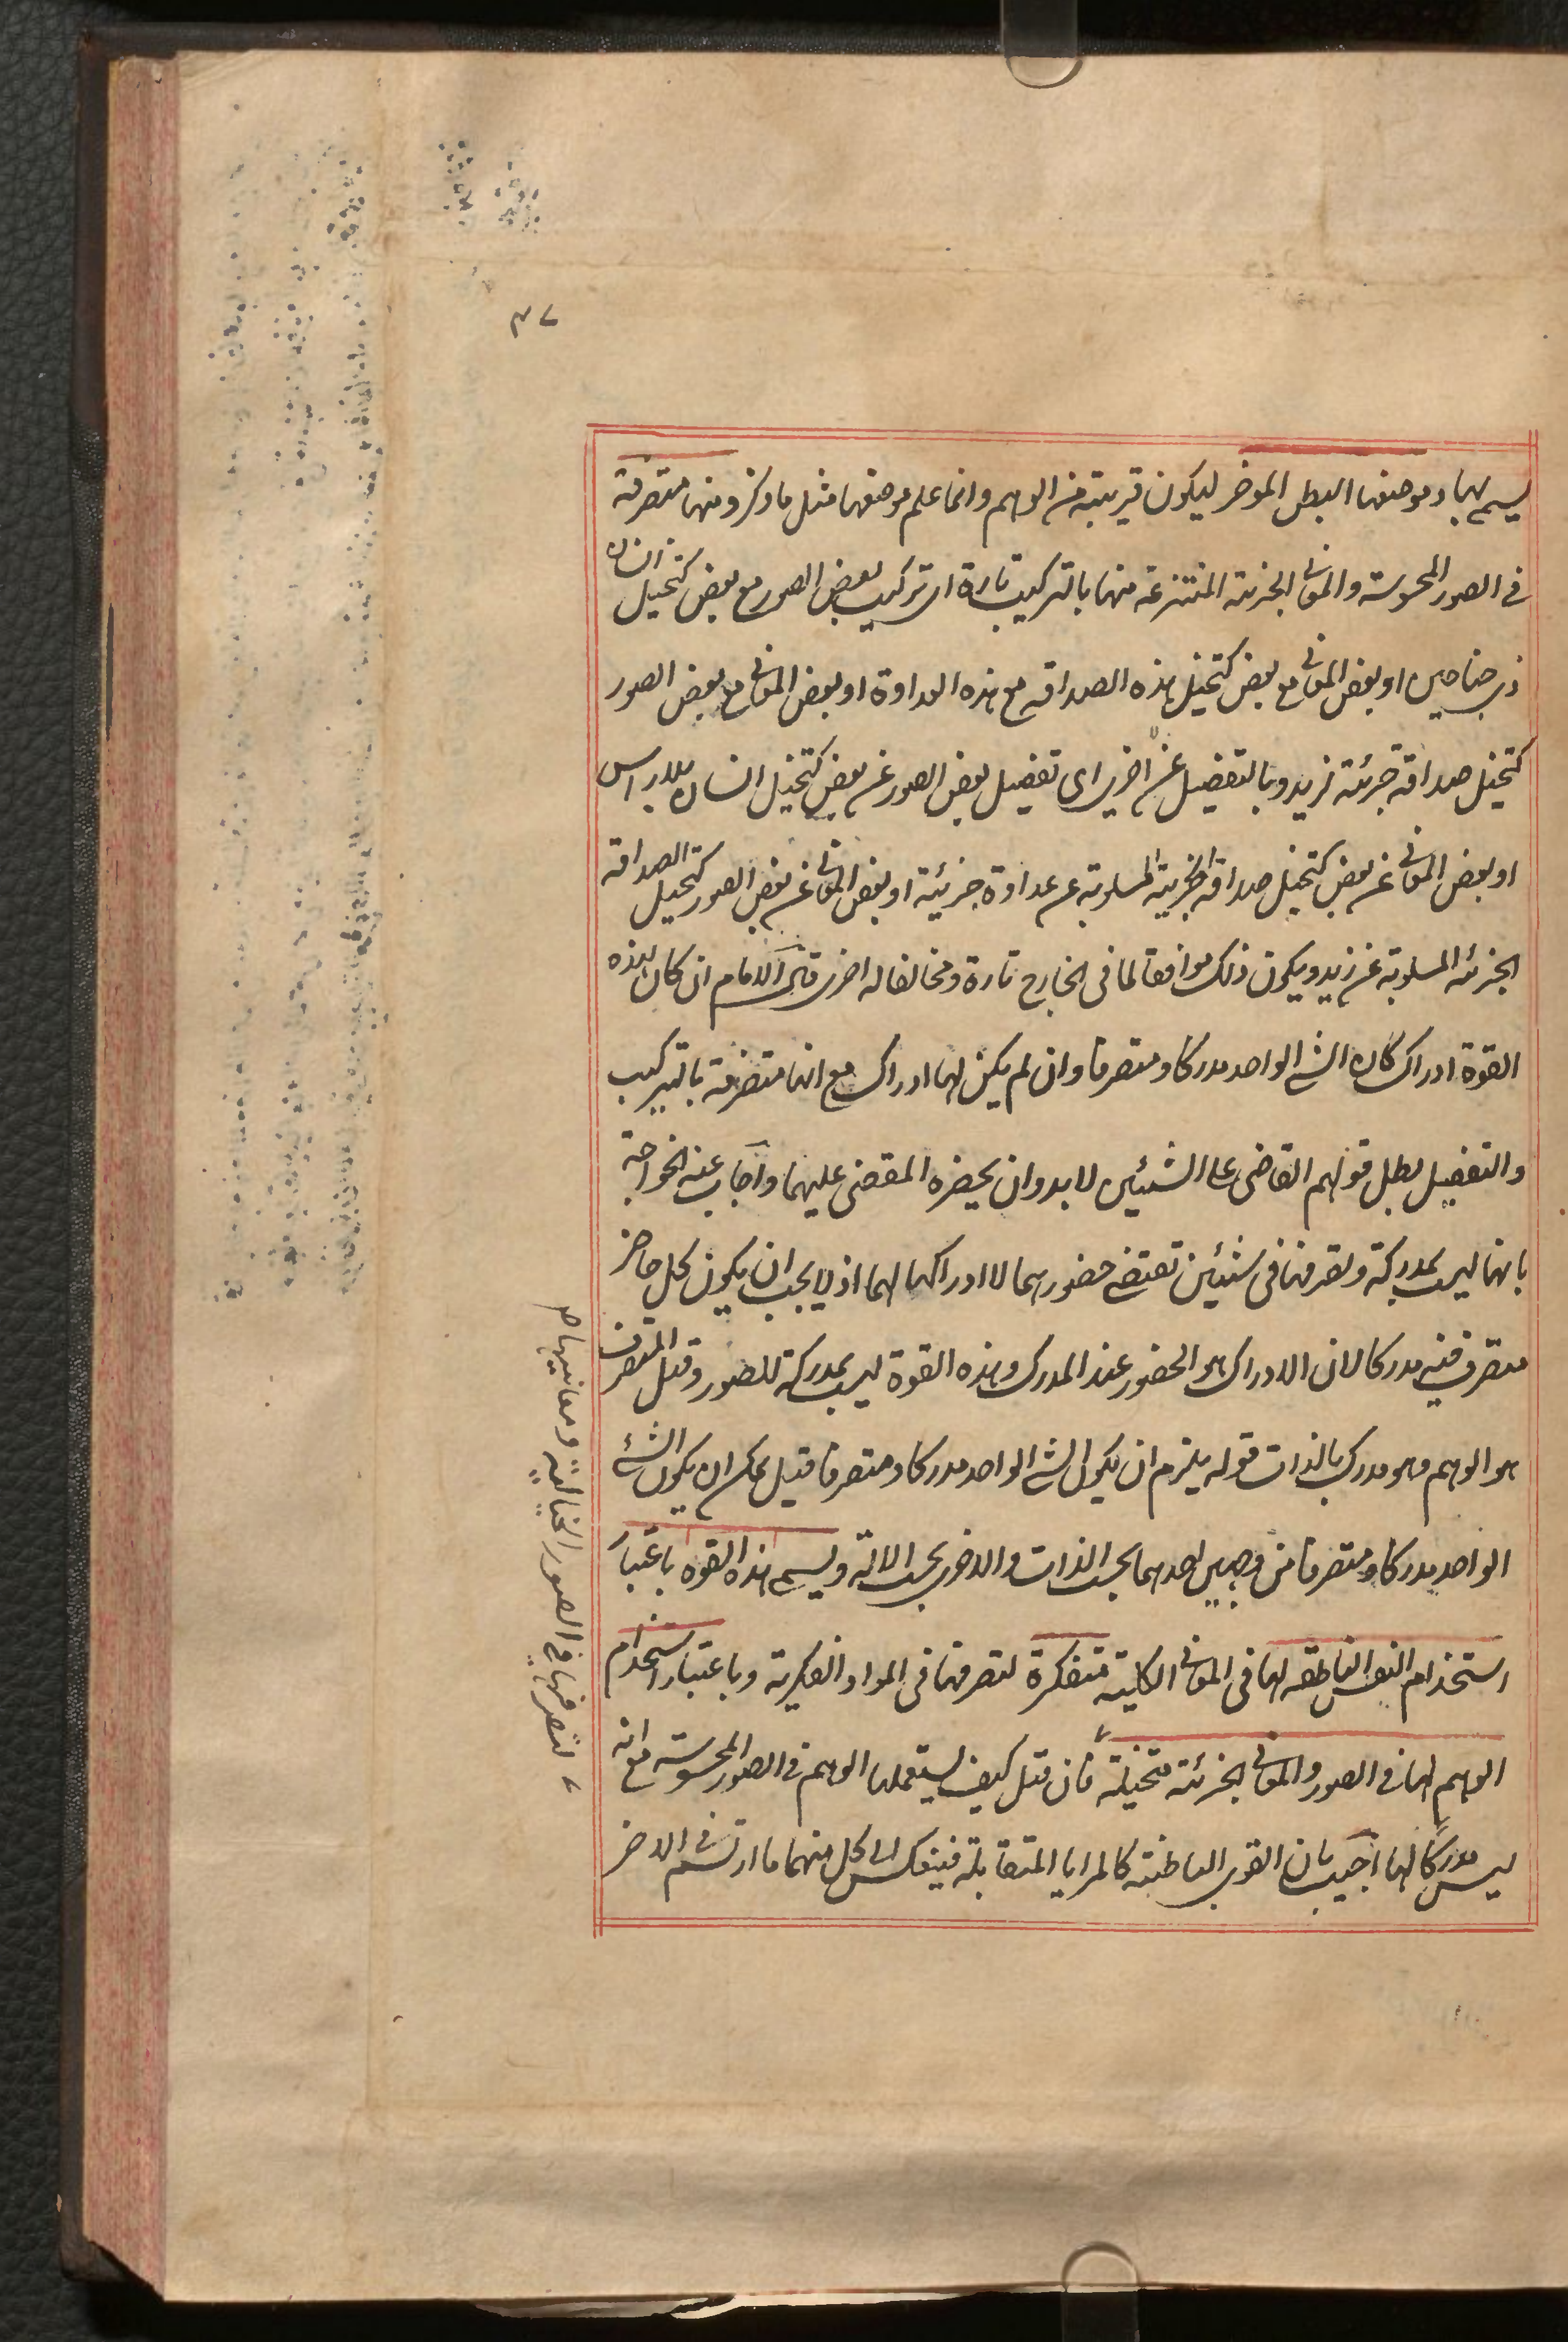 ٤٧
يسمى بها وموضعها البطن الموخر ليكون قريبة من الوهم وانما علم موضعها مثل ما ذكر ومنها متصرفة
في الصور المحسوسة والمعاني الجزئية المنتزعة منها بالتركيب تارة اى تركيب بعض الصور مع بعض كتخيل انسان
ذى جناحين او بعض المعاني مع بعض كتخيل هذه الصداقه مع هذه العداوة او بعض المعاني مع بعض الصور
كتخيل صداقة جزئية لزيد وبالتفصيل عن اخرى اى تفصيل بعض الصور عن بعض كتخيل انسان بلا راس
او بعض المعاني عن بعض كتخيل صداقة الجزئية المسلوبة عن عداوة جزئية او بعض المعاني عن بعض الصور كتخيل الصداقة
الجزئه المسلوبة عن زيد ويكون ذلك موافقا لما فى الخارج تارة ومخالفا له اخرى قال الامام ان كان لهذه
القوة ادراك كان الشئ الواحد مدركا ومتصرفا وان لم يكن لها ادراك مع انها متصرفة بالتركيب
والتفصيل بطل قولهم القاضى على الشيئين لا بد وان يحضره المقضى عليهما واجاب عنه الخواجة
بانها ليست بمدركة وتصرفها فى شيئين تقتضى حضورهما لا ادراكها لهما اذ لا يجب ان يكون كل حاضر
متصرف فيه مدركا لان الادراك هو الحضور عند المدرك وهذه القوة ليست بمدركة للصور وقيل المتصرف
هو الوهم وهو مدرك بالذات قوله يلزم ان يكون الشئ الواحد مدركا ومتصرفا قيل يمكن ان يكون الشئ
الواحد مدركا ومتصرفا من وجهين احدهما بحسب الذات والاخرى بحسب الالة ويسمى هذه القوه باعتبار
استخدام النفس الناطقه لها فى المعاني الكلية متفكرة لتصرفها فى المواد الفكرية وباعتبار استخدام
الوهم لها فى الصور والمعاني الجزئية متخيلة فان قيل كيف يستعملها الوهم في الصور المحسوسة مع انه
ليس مدركا لها اجيب بان القوى الباطنة كالمرايا المتقابلة فينعكس الى كل منهما ما ارتسم فى الاخر
لتصرفها في الصور الخيالية ومعانيها ص